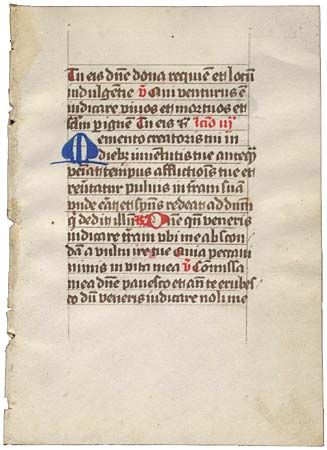 Tu eis dñe dona requiem et locũ
indulgentie ℣ Qui venturus es
iudicare viuos et mortuos et
sclm p ignem Tu eis ℟ lc̃io iij
Memento creatoris tui in
dieb iuuentutis tue anteq̃
veniat tempus afflictiõis tue et
reũtatur puluis in t̃ram suã
vnde erat et sp̃us redeat ad deũ
q dedit illũ ℟ Dñe qñ veneris
iudicare t̃ram vbi me abscon
dã a vultu ire tue Quia peccaui
nimis in vita mea ℣ Cõmissa
mea dñe pauesco et añ te erubes
co dũ veneris iudicare noli me